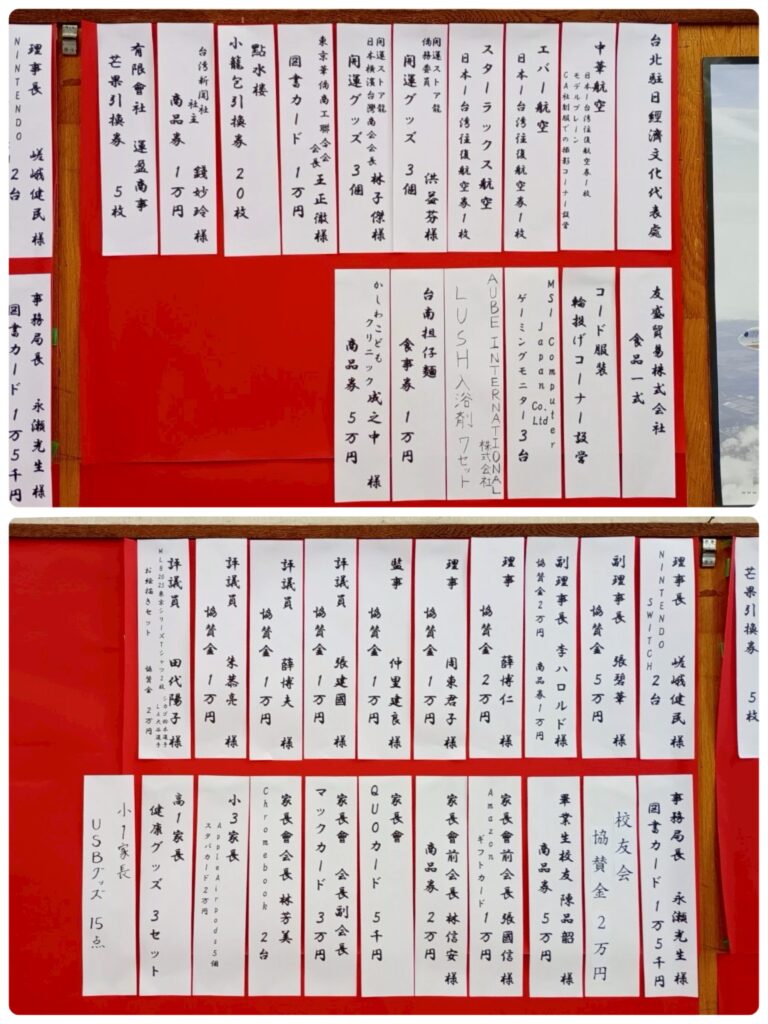 台北駐日經濟文化代表處
中華航空
日本⇔台湾往復航空券1枚
モデルプレーン
CA社制服での撮影コーナー設営
エバー航空
日本⇔台湾往復航空券1枚
スターラックス航空
日本⇔台湾往復航空券1枚
開運ストア龍
僑務委員 洪益芬様
開運グッズ 3個
開運ストア龍
日本横濱台灣商会会長 林子傑様
開運グッズ 3個
東京華僑商工聯合会
会長 王正徹様
図書カード 1万円
點水樓
小籠包引換券 20枚
台湾新聞社
社主 錢妙玲様
商品券 1万円
有限會社 運盈商事
芒果引換券 5枚
理事長 嵯峨健民様
NINTENDO
2台
友盛貿易株式会社
食品一式
コード服装
輪投げコーナー設営
MSI Computer
Japan Co.
Ltd
ゲーミングモニター3台
AUBE INTERNATIONAL
株式会社
LUSH入浴剤 7セット
台南担仔麺
食事券 1万円
かしわこども
クリニック 成之中 様
商品券 5万円
事務局長 永瀬光生様
図書カード 1万5千円
芒果引換券 5枚
理事長 嵯峨健民様
NINTENDO
SWITCH 2台
副理事長 張碧華様
協賛金 5万円
副理事長 李ハロルド様
協賛金2万円 商品券1万円
理事 薛博仁様
協賛金 2万円
理事 周東君子様
協賛金 1万円
監事 仲里建良様
協賛金 1万円
評議員 張建國様
協賛金 1万円
評議員 薛博夫様
協賛金 1万円
評議員 朱恭亮様
協賛金 1万円
評議員 田代陽子様
MLB2025東京シリーズTシャツ2枚
シカゴ鈴木選手
LA大谷選手
お絵描きセット 協賛金 2万円
事務局長 永瀬光生様
図書カード 1万5千円
校友会
協賛金 2万円
畢業生校友 陳品韶様
商品券 5万円
家長會前会長 張國信様
Amazon
ギフトカード 1万円
家長會前会長 林信安様
商品券 2万円
家長會
QUOカード 5千円
家長會 会長副会長
マックカード 3万円
家長會会長 林芳美
Chromebook 2台
小3家長
AppleAirpods5個
スタバカード2万円
高1家長
健康グッズ 3セット
小1家長
USBグッズ 15点